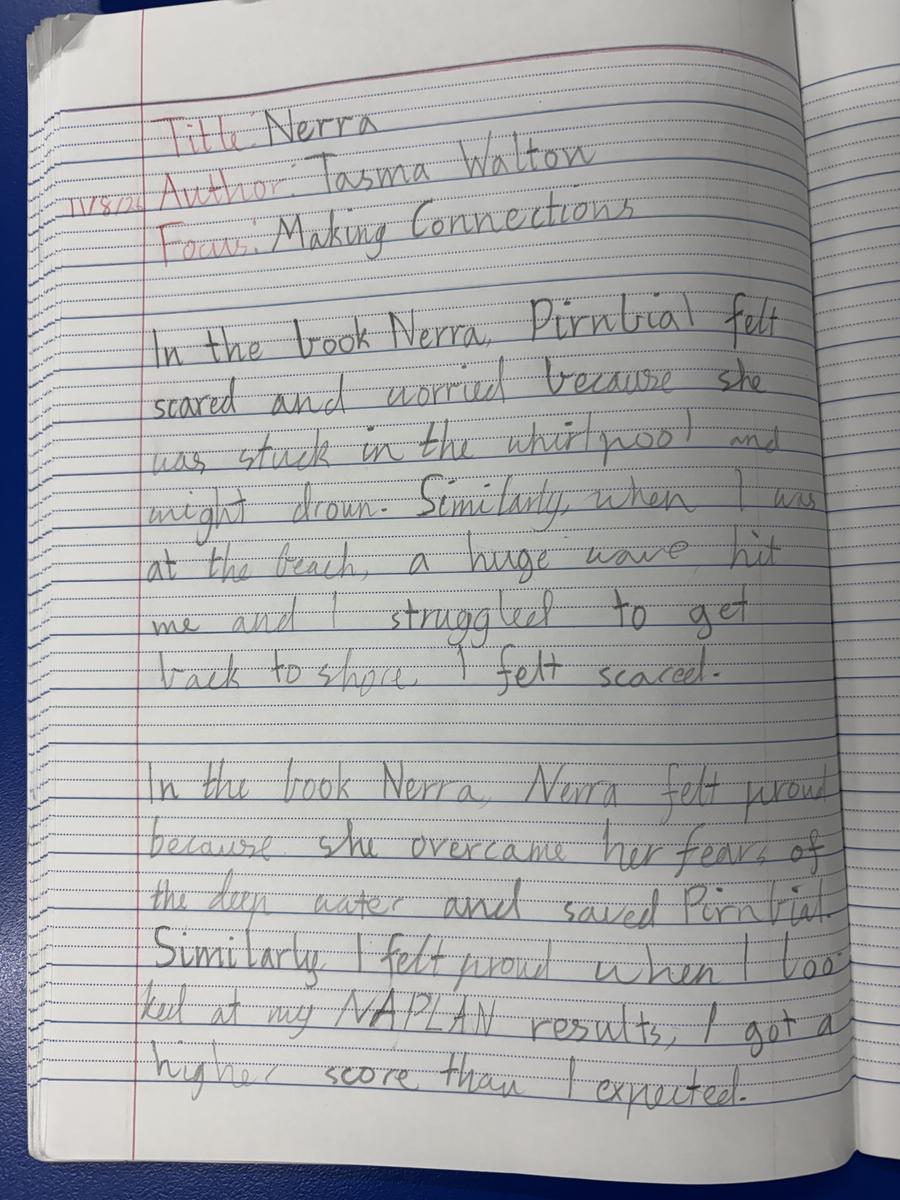 Title: Nerra
Author: Tasma Walton
11/8/25
Focus: Making Connections
In the book Nerra, Pirnbial felt
scared and worried because she
was stuck in the whirlpool and
might drown. Similarly, when I was
at the beach, a huge wave hit
me and I struggled to get
back to shore, I felt scared.
In the book Nerra, Nerra felt proud
because she overcame her fears of
the deep water and saved Pirnbial.
Similarly, I felt proud when I loo
ked at my NAPLAN results, I got a
higher score than I expected.